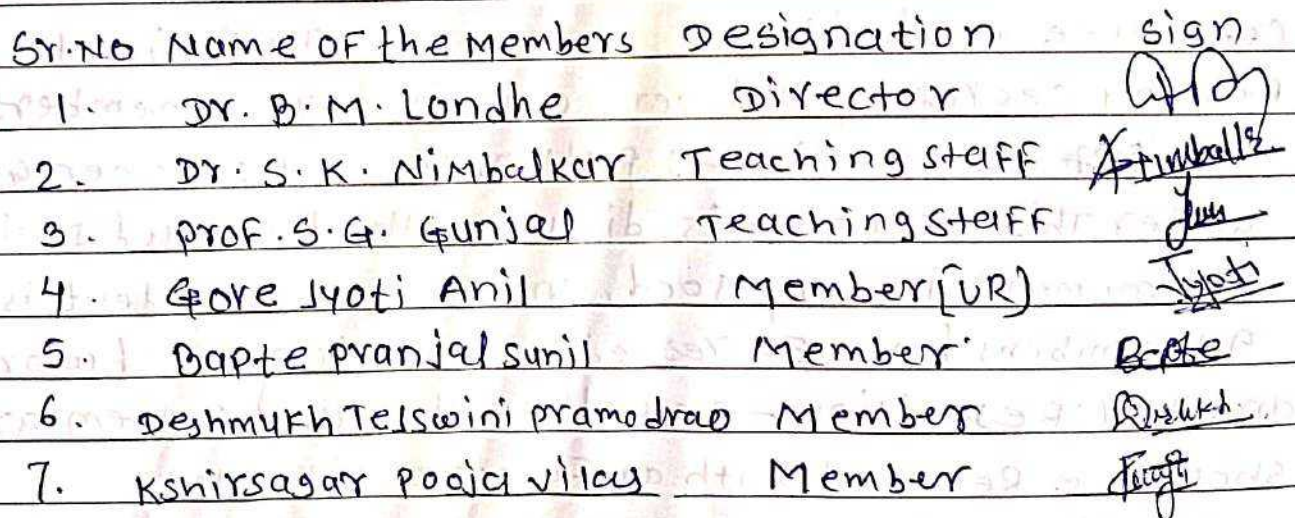 Sr.No Name OF the Members Designation sign.
1. Dr. B.M. Londhe Director
2. Dr. S.K. Nimbalkar Teaching staFF
3. ProF. S.G. Gunjal Teaching staFF
4. Gore Jyoti Anil Member [UR] Jyoti
5. Bapte pranjal sunil Member Bapte
6. Deshmukh Tejswini pramodrao Member
7. Kshirsagar Pooja vilas Member